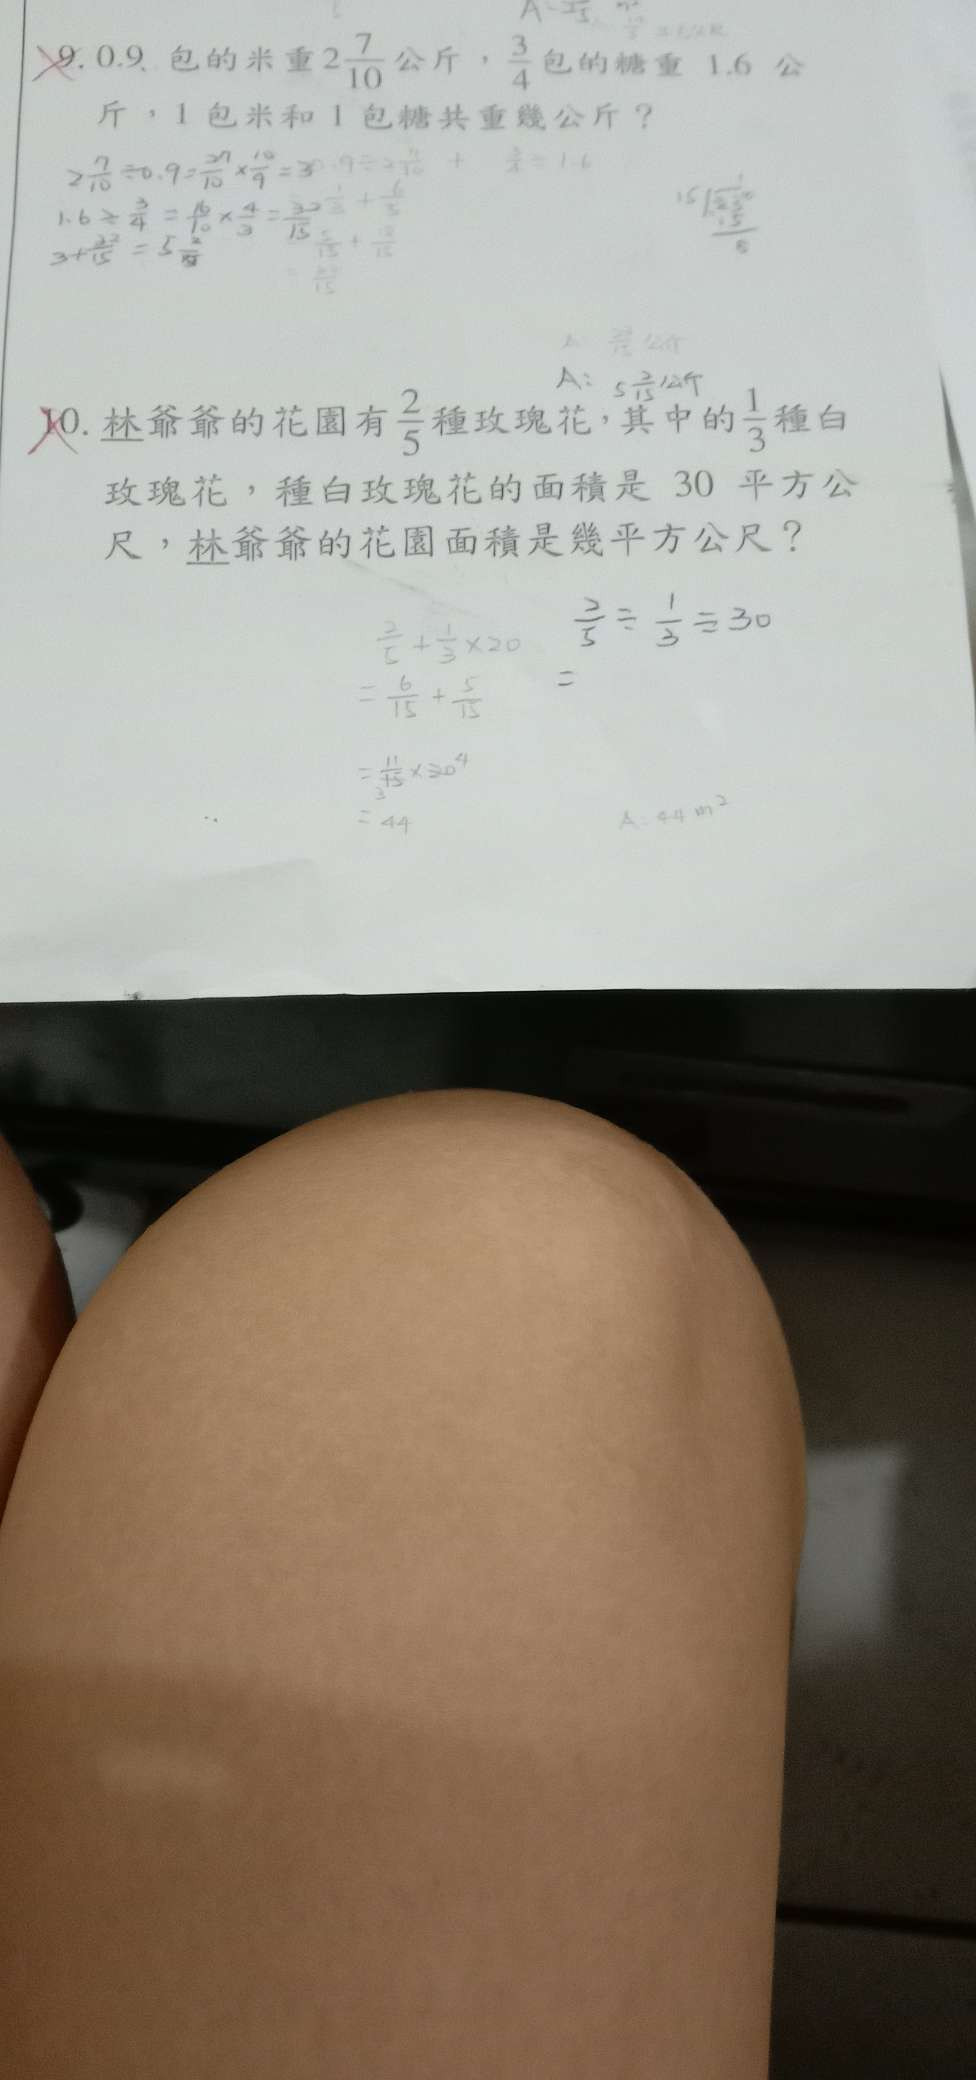 9. 0.9 包的米重 2 7/10 公斤，3/4 包的糖重 1.6 公
斤，1 包米和 1 包糖共重幾公斤？
2 7/10 ÷ 0.9 = 27/10 × 10/9 = 3
1.6 ÷ 3/4 = 16/10 × 4/3 = 32/15
3 + 32/15 = 5 2/15
A: 5 2/15 公斤
10. 林爺爺的花園有 2/5 種玫瑰花，其中的 1/3 種白
玫瑰花，種白玫瑰花的面積是 30 平方公
尺，林爺爺的花園面積是幾平方公尺？
2/5 ÷ 1/3 ÷ 30
=
2/5 + 1/3 × 20
= 6/15 + 5/15
= 44
A: 44 m²